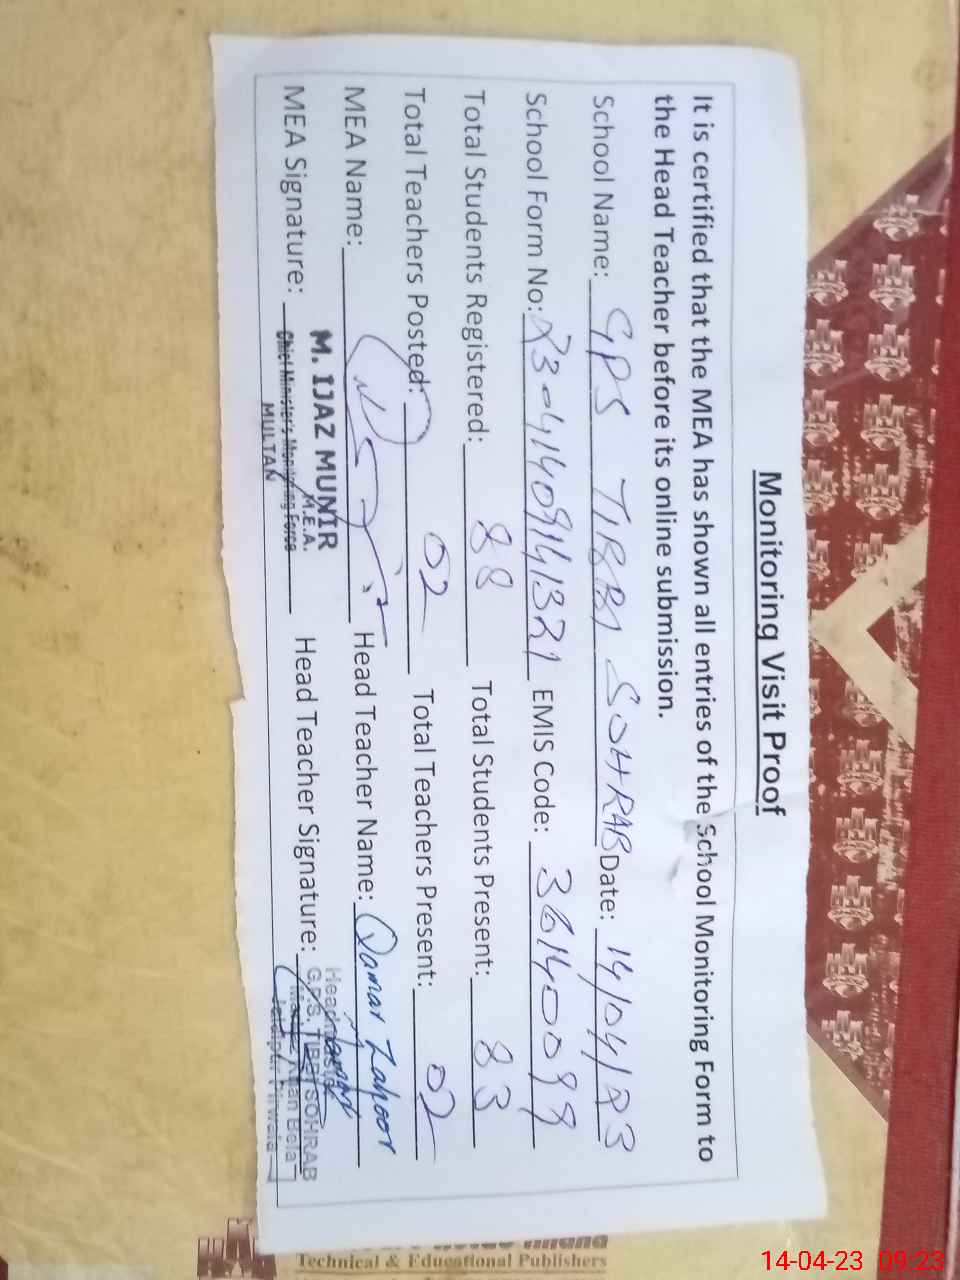 Monitoring Visit Proof
It is certified that the MEA has shown all entries of the School Monitoring Form to
the Head Teacher before its online submission.
School Name: GPS TIBBI SOHRAB Date: 14/04/23
School Form No: EMIS Code: 36140099
Total Students Registered: 88 Total Students Present: 83
Total Teachers Posted: 02 Total Teachers Present: 02
MEA Name: Head Teacher Name: Qamar Zahoor
M. IJAZ MUNIR
M.E.A.
MEA Signature: Chief Minister's Monitoring Force Head Teacher Signature:
MULTAN
G.P.S. TIBBI SOHRAB
Technical & Educational Publishers
14-04-23 09:23